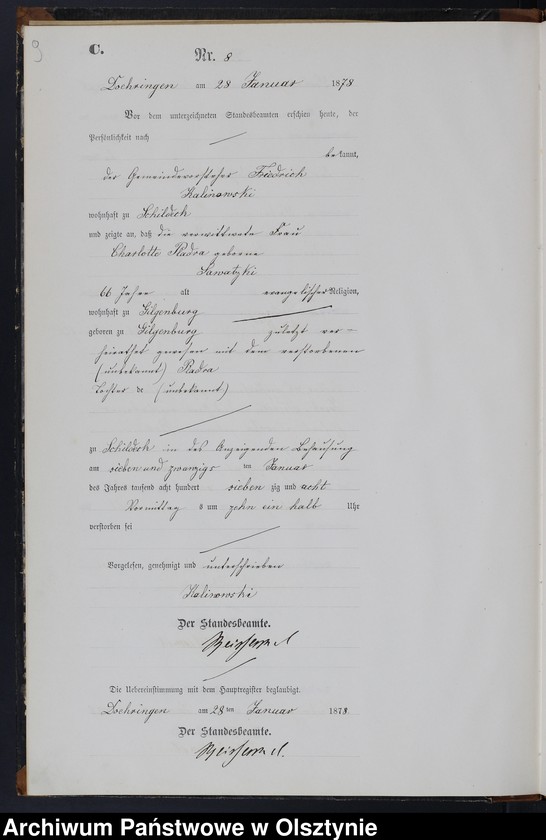 9
C.
Nr. 8
Doehringen am 28 Januar 1878
Vor dem unterzeichneten Standesbeamten erschien heute, der
Persönlichkeit nach
bekannt,
der Gemeindevorsteher Friedrich
Kalinowski
wohnhaft zu Schildeck
und zeigte an, daß die verwittwete Frau
Charlotte Radra geborne
Sawatzki
66 Jahre alt evangelischer Religion,
wohnhaft zu Gilgenburg
geboren zu Gilgenburg zuletzt ver-
heirathet gewesen mit dem verstorbenen
(unbekannt) Radra
Tochter de (unbekannt)
zu Schildeck in des Anzeigenden Behausung
am sieben und zwanzigs ten Januar
des Jahres tausend acht hundert sieben zig und acht
Vormittag s um zehn ein halb Uhr
verstorben sei
Vorgelesen, genehmigt und unterschrieben
Kalinowski
Der Standesbeamte.
Die Uebereinstimmung mit dem Hauptregister beglaubigt.
Doehringen am 28 ten Januar 1878.
Der Standesbeamte.
Archiwum Państwowe w Olsztynie